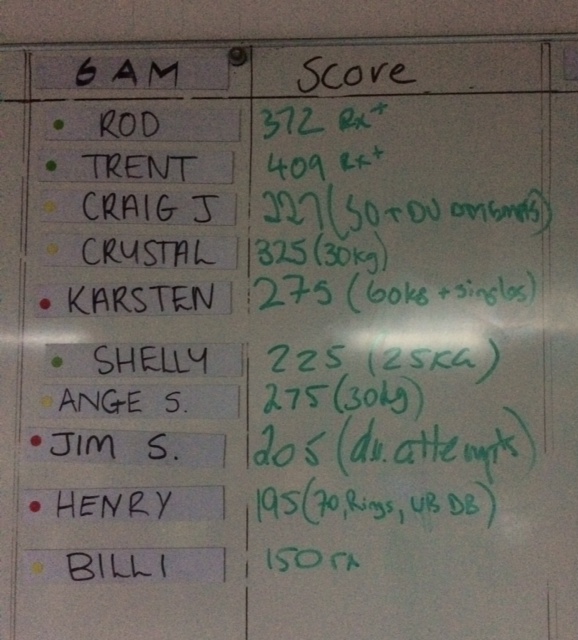 6 AM Score
ROD 372 Rx+
TRENT 409 Rx+
CRAIG J 227 (50 + DU
CRYSTAL 325 (30kg)
KARSTEN 275 (60kg + singles)
SHELLY 225 (25KG)
ANGE S. 275 (30kg)
JIM S. 205 (du. attempts)
HENRY 195 (70, Rings, UB DB)
BILLI 150 rx